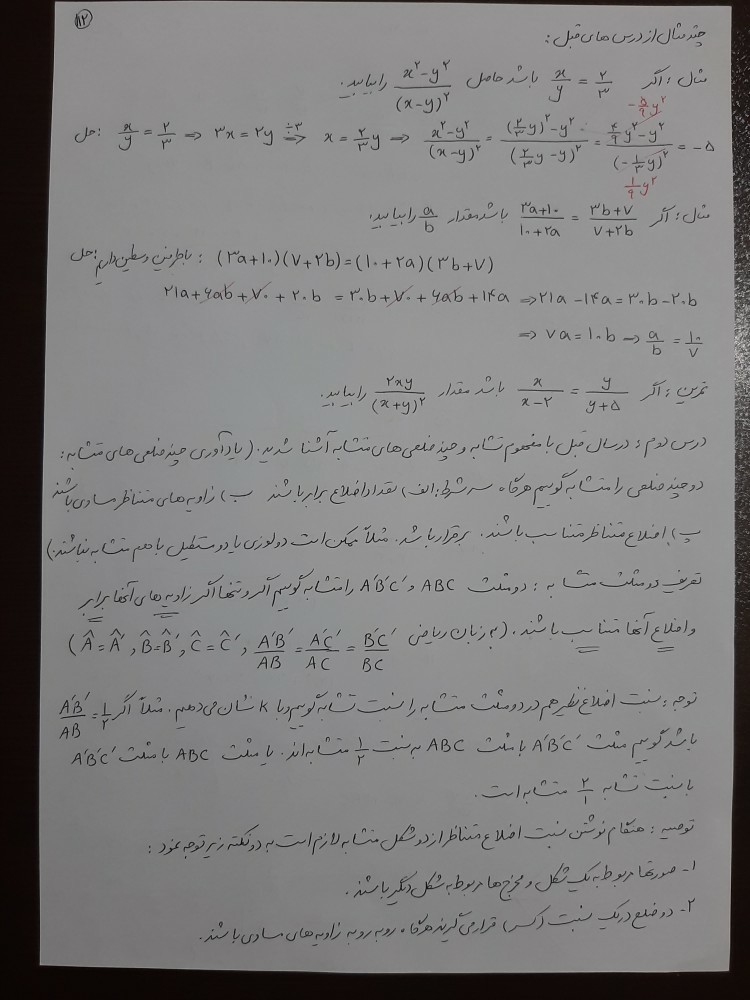 ۱۲
چند مثال از درس های قبل :
مثال : اگر x/y = ۲/۳ باشد حاصل (x^۲ - y^۲)/(x-y)^۲ را بیابید.
حل : x/y = ۲/۳ ⇒ ۳x = ۲y ⇒(÷۳) x = ۲/۳ y ⇒ (x^۲-y^۲)/(x-y)^۲ = ((۲/۳ y)^۲ - y^۲)/(۲/۳ y - y)^۲ = (۴/۹ y^۲ - y^۲)/(-۱/۳ y)^۲ = -۵
-۵/۹ y^۲
۱/۹ y^۲
مثال : اگر (۳a+۱۰)/(۱۰+۲a) = (۳b+۷)/(۷+۲b) باشد مقدار a/b را بیابید.
حل : با طرفین وسطین داریم : (۳a+۱۰)(۷+۲b) = (۱۰+۲a)(۳b+۷)
۲۱a + ۶ab + ۷۰ + ۲۰b = ۳۰b + ۷۰ + ۶ab + ۱۴a ⇒ ۲۱a - ۱۴a = ۳۰b - ۲۰b
⇒ ۷a = ۱۰b ⇒ a/b = ۱۰/۷
تمرین : اگر x/(x-۲) = y/(y+۵) باشد مقدار ۲xy/(x+y)^۲ را بیابید.
درس دوم : در سال قبل با مفهوم تشابه و چند ضلعی های متشابه آشنا شدید. ( یادآوری چند ضلعی های متشابه :
دو چند ضلعی را متشابه گوییم هرگاه سه شرط : الف) تعداد اضلاع برابر باشند ب) زاویه های متناظر مساوی باشند
پ) اضلاع متناظر متناسب باشند. برقرار باشد. مثلاً ممکن است دو لوزی یا دو مستطیل با هم متشابه نباشند. )
تعریف دو مثلث متشابه : دو مثلث ABC و A'B'C' را متشابه گوییم اگر و تنها اگر زاویه های آنها برابر
و اضلاع آنها متناسب باشند. ( به زبان ریاضی Â = Â' , B̂ = B̂' , Ĉ = Ĉ' , A'B'/AB = A'C'/AC = B'C'/BC )
توجه : نسبت اضلاع نظیر هم در دو مثلث متشابه را نسبت تشابه گوییم و با K نشان می دهیم. مثلاً اگر A'B'/AB = ۱/۲
باشد گوییم مثلث A'B'C' با مثلث ABC به نسبت ۱/۲ متشابه اند. یا مثلث ABC با مثلث A'B'C'
با نسبت تشابه ۲/۱ متشابه است.
توصیه : هنگام نوشتن نسبت اضلاع متناظر از دو شکل متشابه لازم است به دو نکته زیر توجه نمود :
۱- صورتها مربوط به یک شکل و مخرج ها مربوط به شکل دیگر باشند.
۲- دو ضلع در یک نسبت (کسر) قرار می گیرند هرگاه روبه روبه زاویه های مساوی باشند.